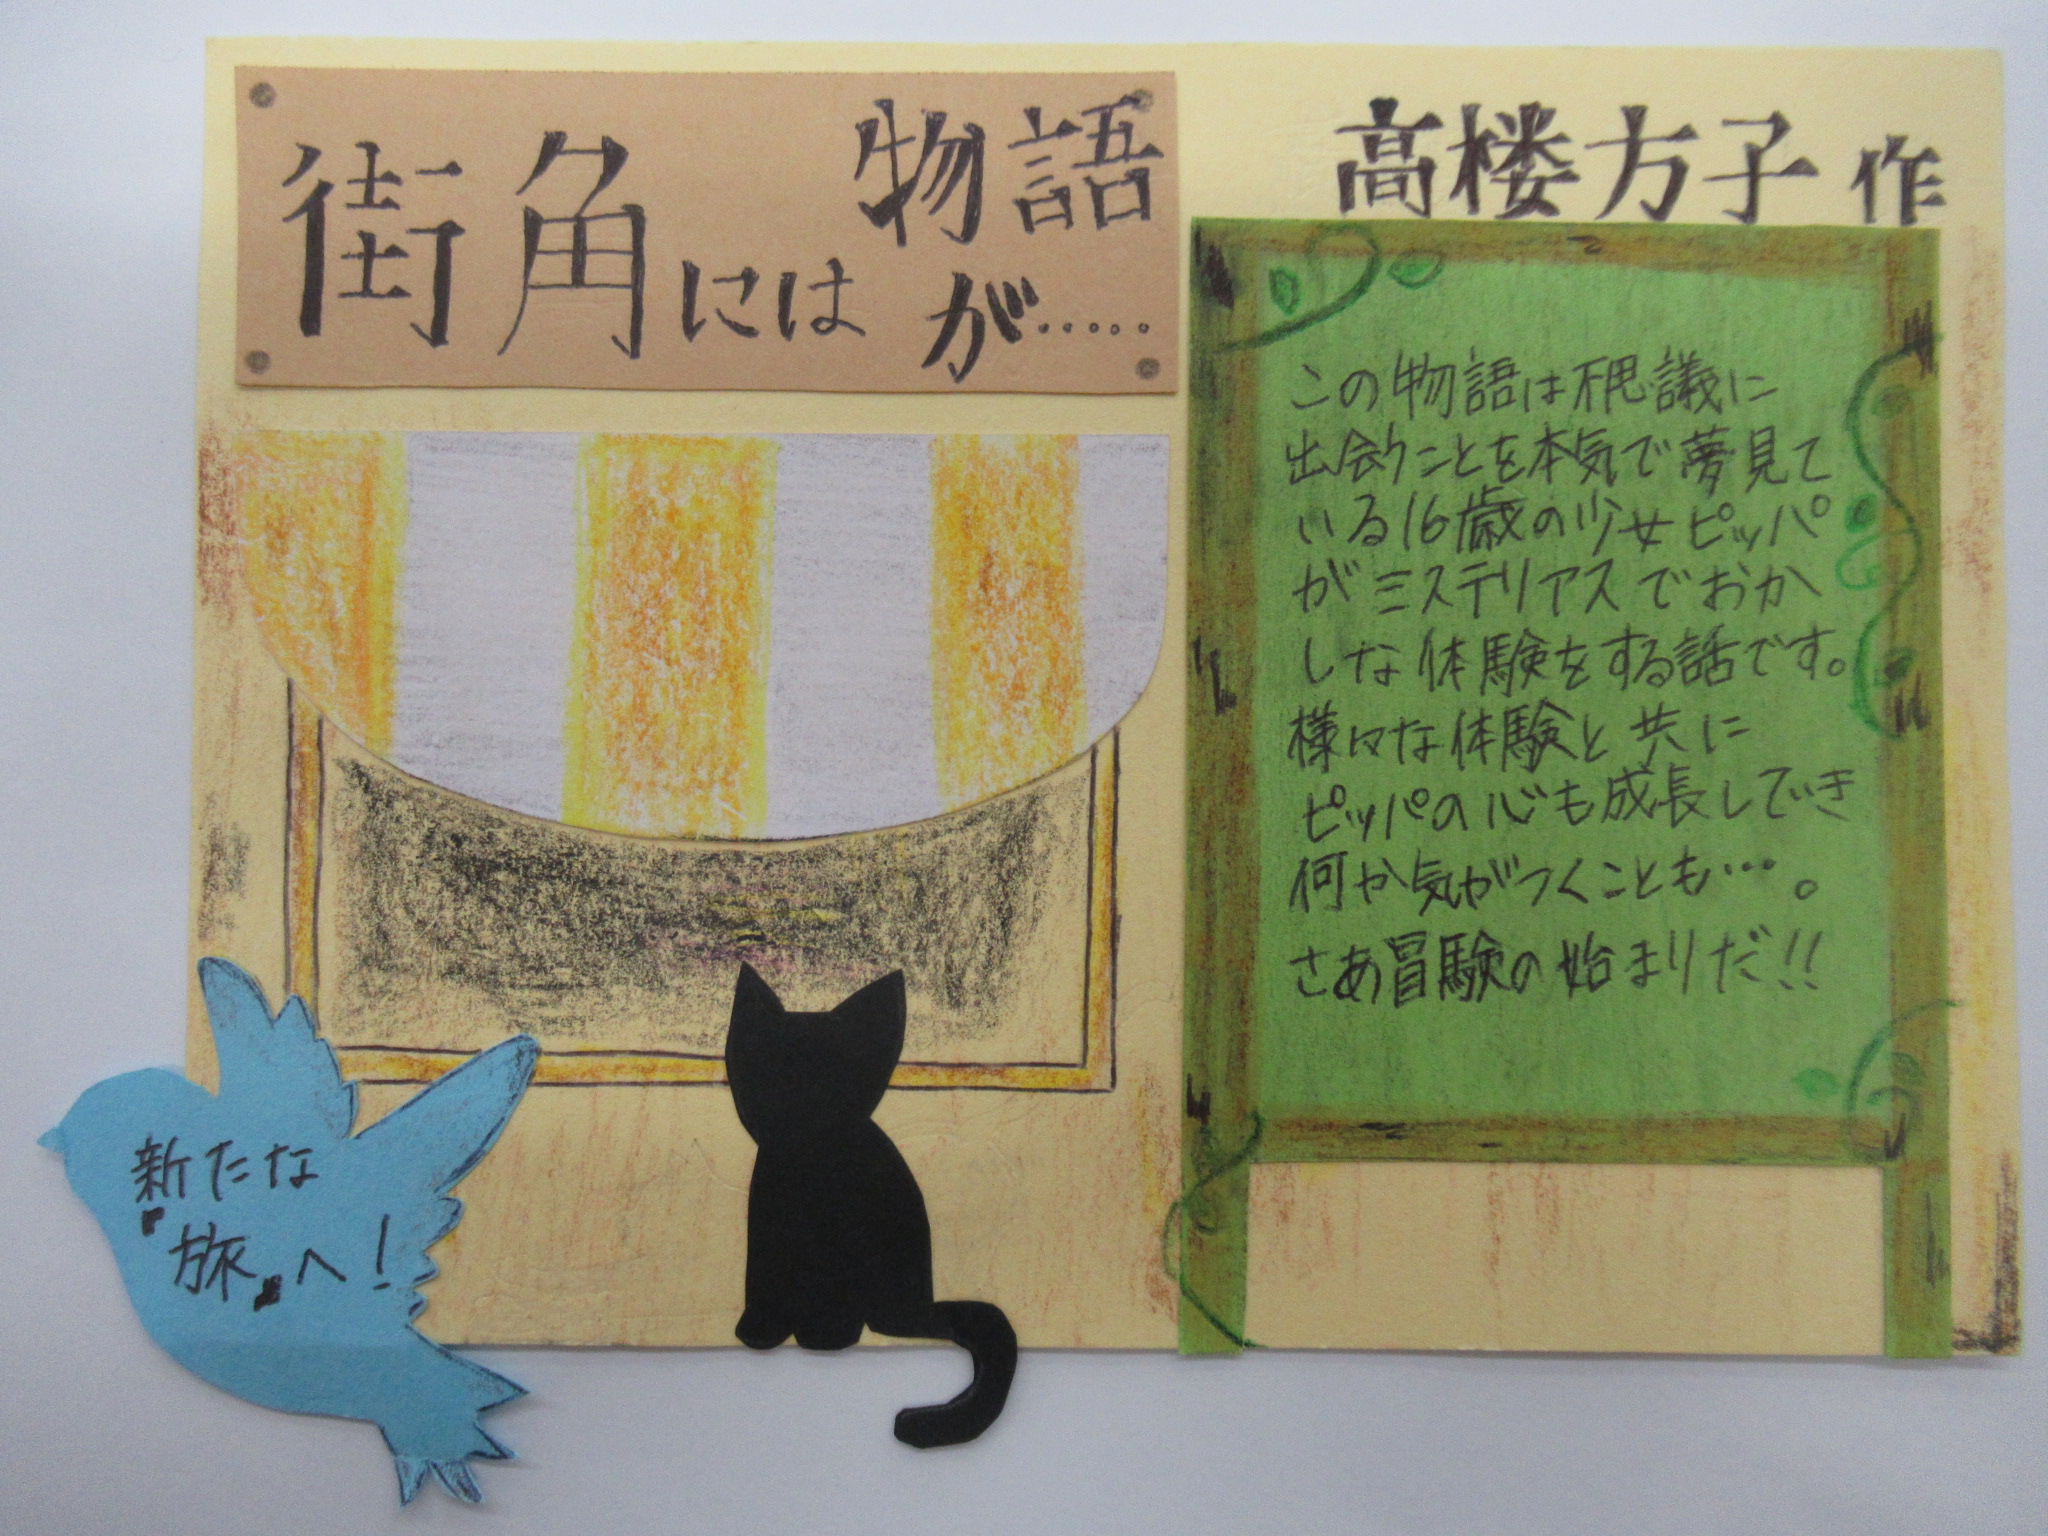 街角には
物語
が……
高楼方子 作
この物語は不思議に
出会うことを本気で夢見て
いる16歳の少女ピッパ
がミステリアスでおか
しな体験をする話です。
様々な体験と共に
ピッパの心も成長していき
何か気がつくことも…。
さあ冒険の始まりだ!!
新たな
『旅』へ!